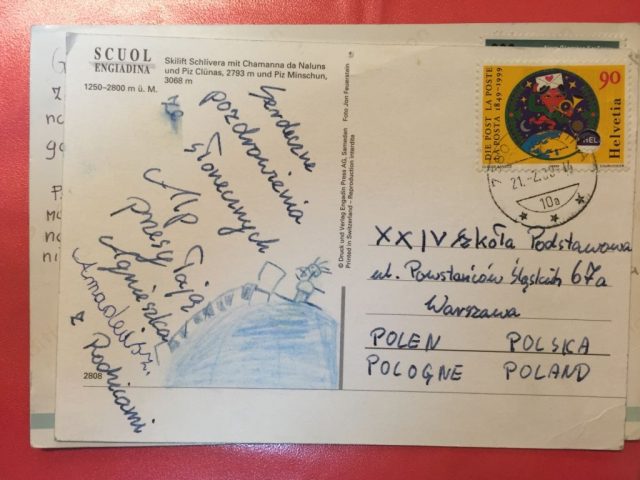 SCUOL
ENGIADINA
1250–2800 m ü. M.
Skilift Schlivera mit Chamanna da Naluns
und Piz Clünas, 2793 m und Piz Minschun,
3068 m
Serdeczne
pozdrowienia
ze słonecznych
Alp
przesyłają
Agnieszka
Amadeusz
z Rodzicami
2808
© Druck und Verlag Engadin Press AG, Samedan Foto Jon Feuerstein
Printed in Switzerland – Reproduction interdite
DIE POST LA POSTE
LA POSTA 1849-1999
90
Helvetia
21.-2.99
10a
XXIV Szkoła Podstawowa
ul. Powstańców Śląskich 67a
Warszawa
POLEN POLSKA
POLOGNE POLAND